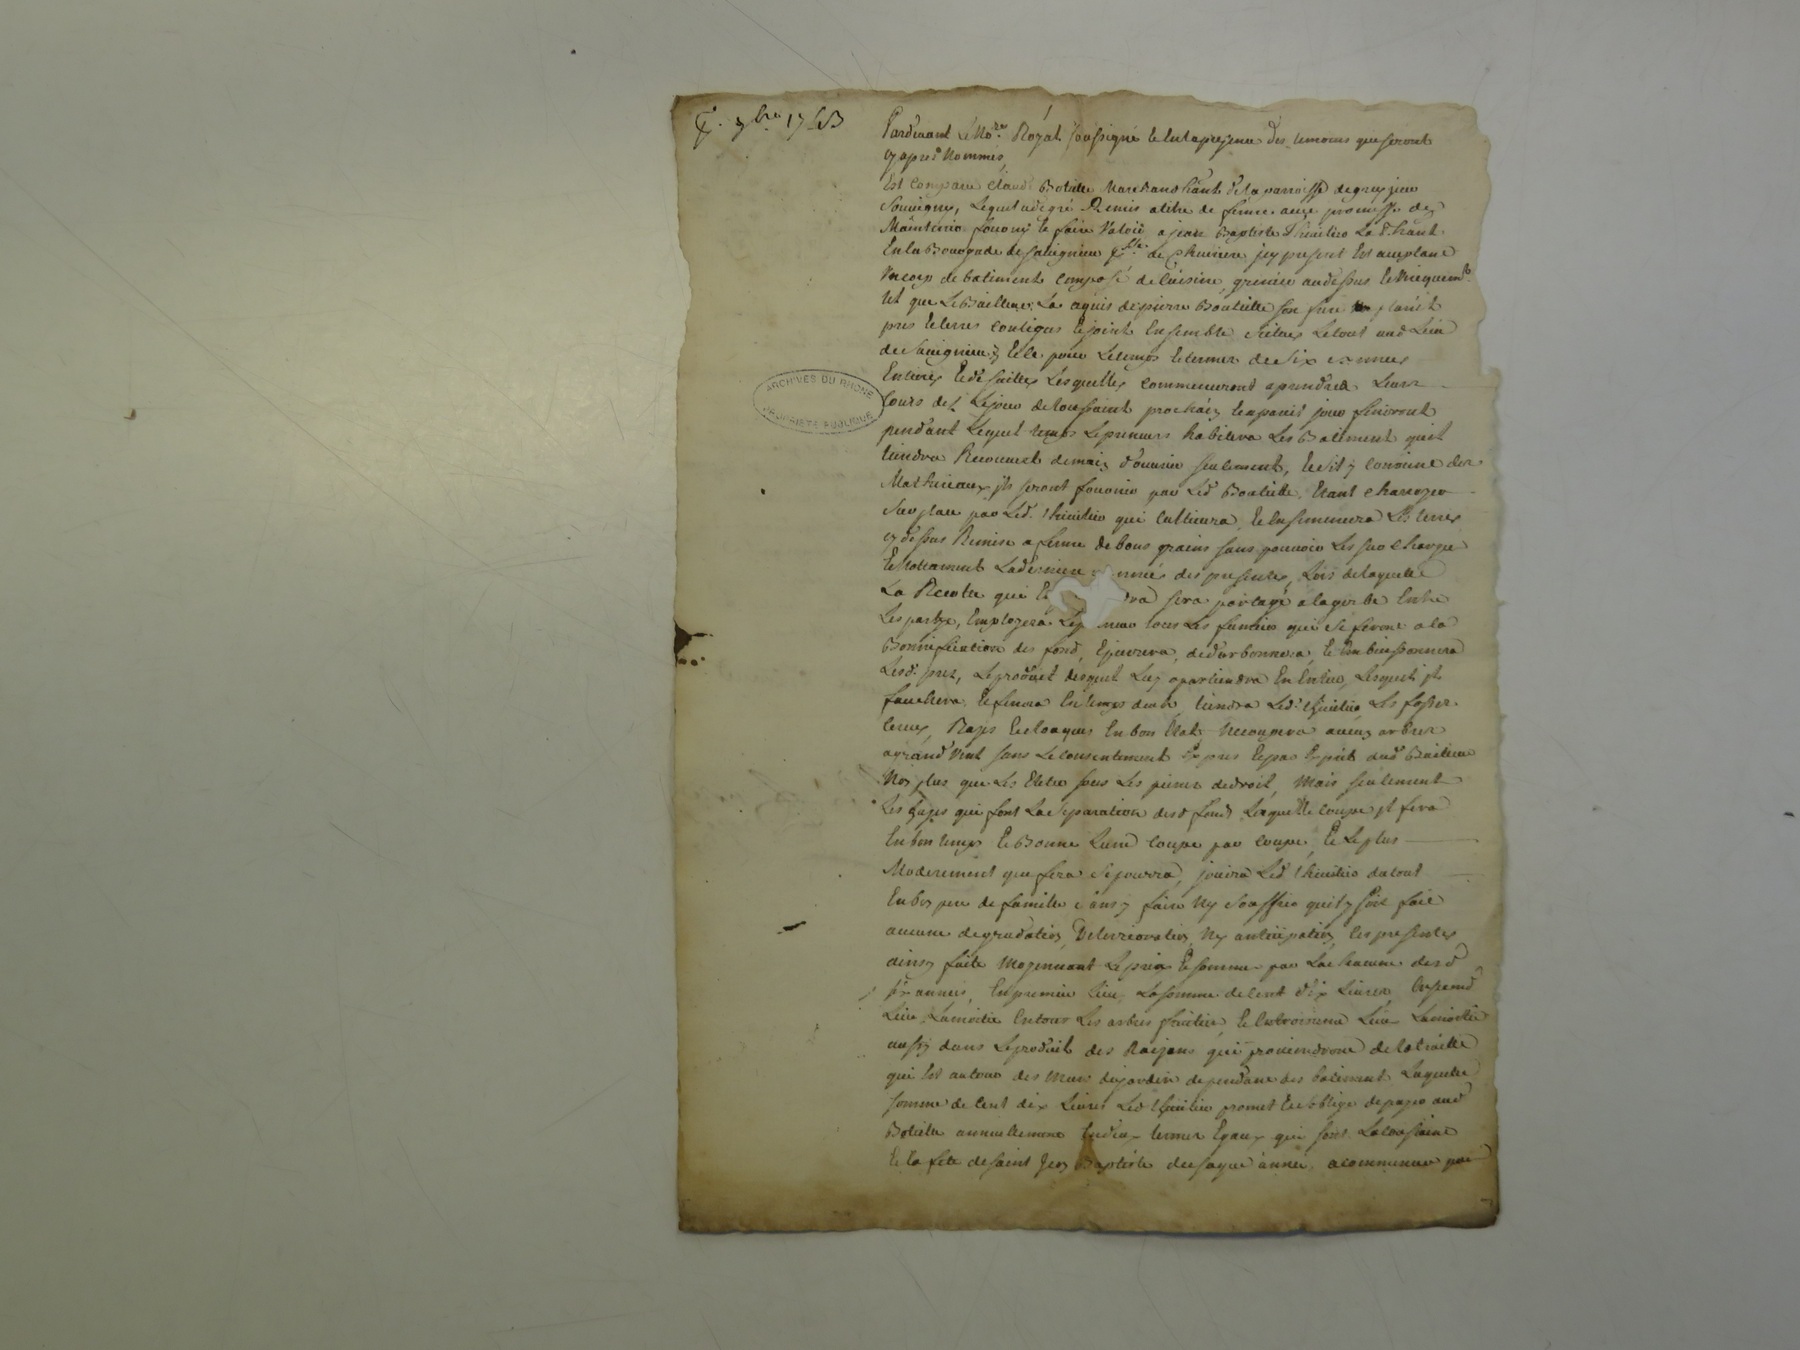 7bre 1763
Pardevant Le No.re Royal soussigné et En la presence des temoins que seront
cy apres Nommés
Est comparu Claude Botille Marchand h'ant de la parroisse de
Souvigny, Lequel a de gré Remis a titre de ferme avec promesse de
Maintenir fournir et faire Valoir a jean Baptiste Thiollier La h'ant
En la Bourgade de Savignieu p.sse de Chariere icy present Et acceptant
Un corps de batiment composé de Cuisine, grenier au dessus
Et que Le Bailleur La aquis de pierre Boutille son frere plus
pres Et terres contigus Et joint Ensemble scitués Le tout aud Lieu
de Savignieu, Et ce pour Le temps et terme de Six années
Entieres Et de suittes Lesquelles commenceront a prendre Leurs
cours des Le jour de toussaint prochain Et a pareil jour finiront
pendant Lequel temps Le preneur habitera Les Batiment qu'il
tiendra Recouvert de main d'ouvrier seulement, Et s'il y convient des
Matheriaux ils seront fournis par Led Boutille Etant charoyer
Sur place par Led. Thiollier qui Cultivera Et Ensemencera Les terres
cy dessus Remise a ferme de bons grains sans pouvoir Les sur charger
Et Nottament La derniere année des presentes, Lors de laquelle
La Recolte qui sera partagé a la gerbe Entre
Les parties, Employera Le preneur tous Les fumiers qui se feront a la
Bonnification des fond, Epierera, dedarbonnera, Et Embuissonnera
Lesd. prez, Le produit desquels Luy apartiendra En Entier, Lesquels il
fauchera Et fenera En temps du, tiendra Led. Thiollier Les fosses
terres Rases Et cloaques En bon Etat Ne coupera aucun arbres
a grand Vent sans Le consentement Exprés Et par Ecrit dud Bailleur
Non plus que Les Etetes sous Les peines de droit, Mais seulement
Les hayes qui font La separation desd fond Laquelle coupe il fera
En bon temps Et Bonne Lune Coupe par coupe, Et Le plus
Moderement que fera Se pourra, jouira Led Thiollier du tout
En bon pere de famille Sans y faire Ny Souffrir qu'il y soit fait
aucune degradation, Deterrioration Ny anticipation, Les presentes
ainsy faite Moyennant Le prix Et somme par La chacune desd
six années, En premier Lieu La somme de Cent dix Livres En second
Lieu La moitié En tous Les arbres fruitier, Et En troisieme Lieu La moitié
aussy dans Le produit des Raisins qui proviendront de la traille
qui Est autour des Murs du jardin dependant des batiment Laquelle
somme de Cent dix Livres Led Thiollier promet Et s'oblige de payer aud
Botille annuellement En deux termes Egaux qui sont La toussaint
Et la fete de Saint Jean Baptiste de chaque année, a commencer par
ARCHIVES DU RHONE
PROPRIETE PUBLIQUE